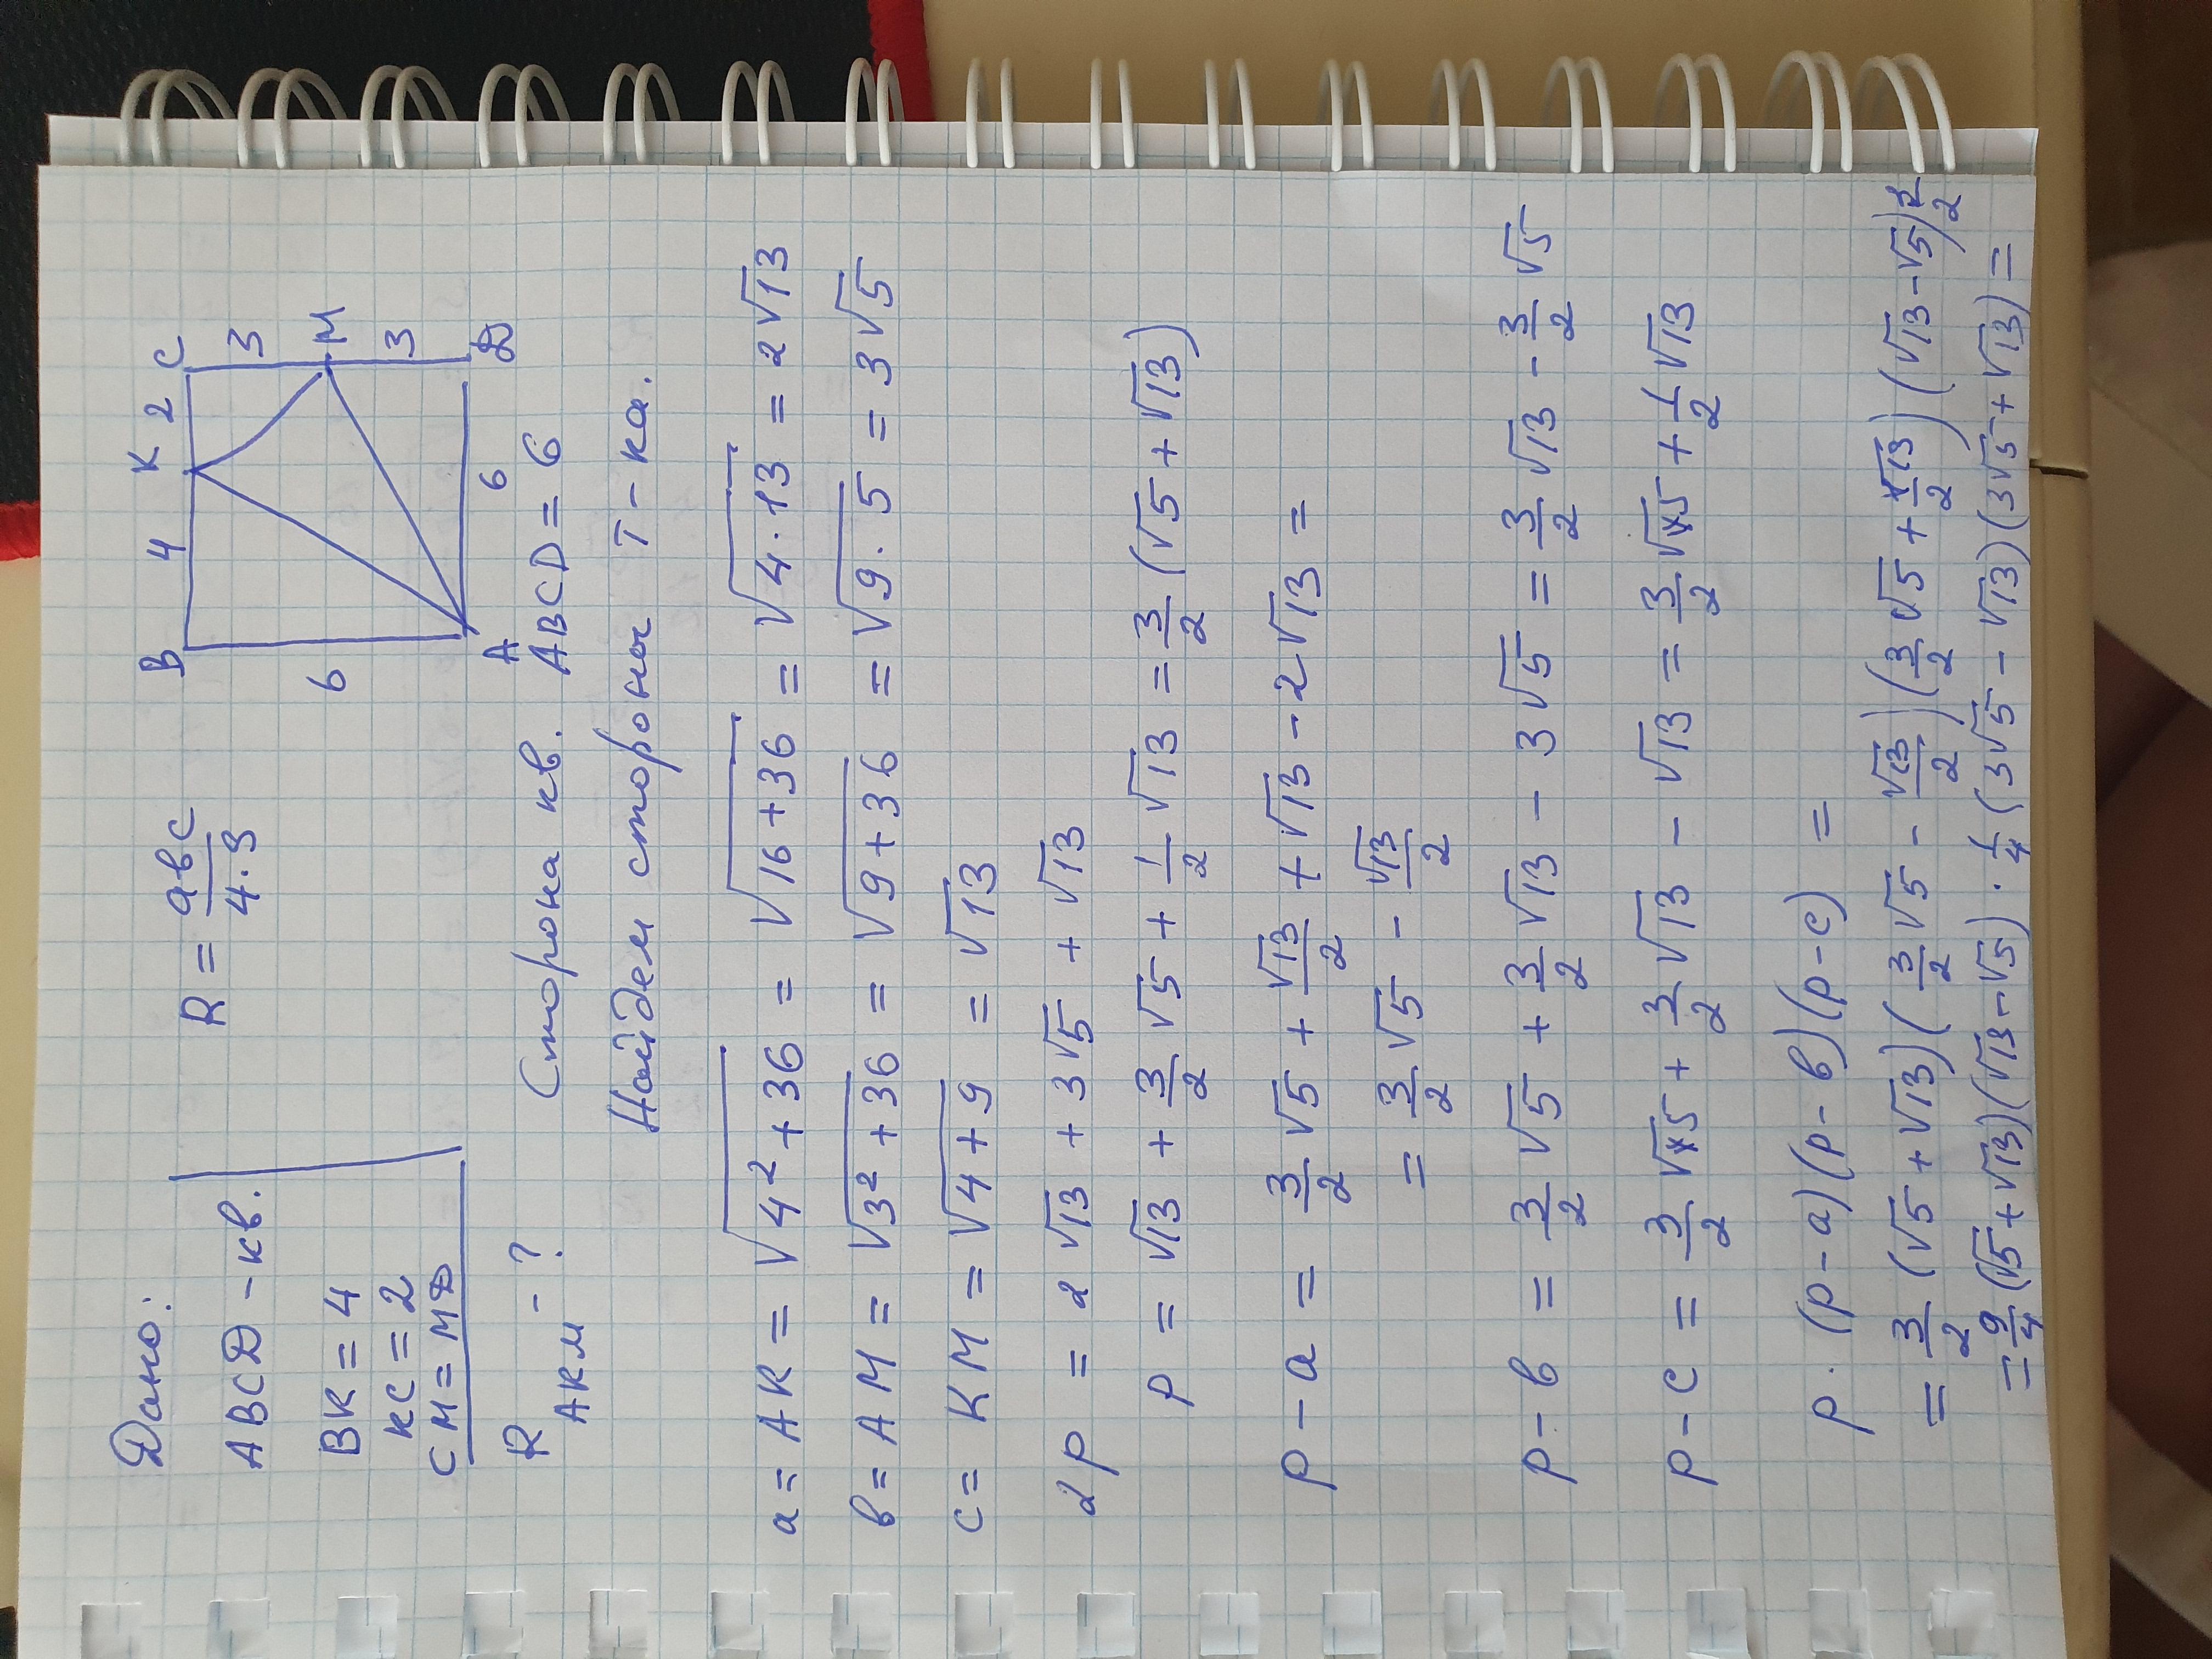 Дано:
ABCD - кв.
BK = 4
KC = 2
CM = MD
R AKM - ?
R = aвc / 4·S
B 4 K 2 C
6
3
M
3
A 6 D
Сторона кв. ABCD = 6
Найдем стороны т-ка.
a = AK = √(4² + 36) = √(16 + 36) = √(4 · 13) = 2√13
в = AM = √(3² + 36) = √(9 + 36) = √(9 · 5) = 3√5
c = KM = √(4 + 9) = √13
2p = 2√13 + 3√5 + √13
p = √13 + 3/2 √5 + 1/2 √13 = 3/2 (√5 + √13)
p - a = 3/2 √5 + √13/2 + √13 - 2√13 =
= 3/2 √5 - √13/2
p - в = 3/2 √5 + 3/2 √13 - 3√5 = 3/2 √13 - 3/2 √5
p - c = 3/2 √5 + 3/2 √13 - √13 = 3/2 √5 + 1/2 √13
p · (p - a)(p - в)(p - c) =
= 3/2 (√5 + √13)(3/2 √5 - √13/2)(3/2 √5 + √13/2)(√13 - √5) 3/2
= 9/4 (√5 + √13)(√13 - √5) · 1/4 (3√5 - √13)(3√5 + √13) =